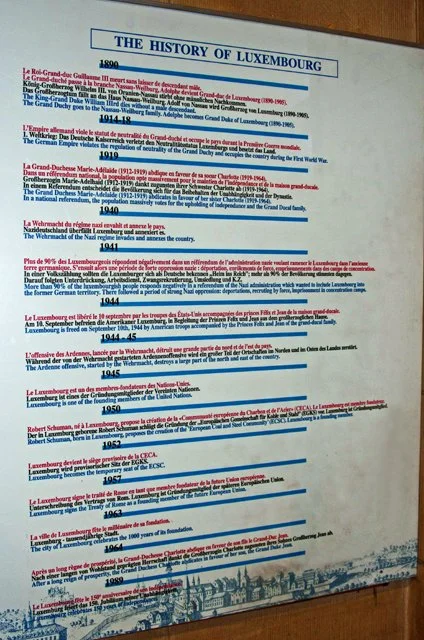 THE HISTORY OF LUXEMBOURG
1890
Le Roi-Grand-duc Guillaume III meurt sans laisser de descendant mâle.
Le Grand-duché passe à la branche Nassau-Weilburg. Adolphe devient Grand-duc de Luxembourg (1890-1905).
König-Großherzog Wilhelm III. von Oranien-Nassau stirbt ohne männlichen Nachkommen.
Das Großherzogtum fällt an das Haus Nassau-Weilburg. Adolf von Nassau wird Großherzog von Luxemburg (1890-1905).
The King-Grand Duke William IIIrd dies without a male descendant.
The Grand Duchy goes to the Nassau-Weilburg family. Adolphe becomes Grand Duke of Luxembourg (1890-1905).
1914-18
L'Empire allemand viole le statut de neutralité du Grand-duché et occupe le pays durant la Première Guerre mondiale.
1. Weltkrieg: Das Deutsche Kaiserreich verletzt den Neutralitätsstatus Luxemburgs und besetzt das Land.
The German Empire violates the regulation of neutrality of the Grand Duchy and occupies the country during the First World War.
1919
La Grand-Duchesse Marie-Adélaïde (1912-1919) abdique en faveur de sa soeur Charlotte (1919-1964).
Dans un référendum national, la population opte massivement pour le maintien de l'indépendance et de la maison grand-ducale.
Großherzogin Marie-Adelheid (1912-1919) dankt zugunsten ihrer Schwester Charlotte ab (1919-1964).
In einem Referendum entscheidet die Bevölkerung sich für das Beibehalten der Unabhängigkeit und der Dynastie.
The Grand Duchess Marie-Adelaide (1912-1919) abdicates in favour of her sister Charlotte (1919-1964).
In a national referendum, the population massively votes for the upholding of independance and the Grand Ducal family.
1940
La Wehrmacht du régime nazi envahit et annexe le pays.
Nazideutschland überfällt Luxemburg und annexiert es.
The Wehrmacht of the Nazi regime invades and annexes the country.
1941
Plus de 90% des Luxembourgeois répondent négativement dans un référendum de l'administration nazie voulant ramener le Luxembourg dans l'ancienne
terre germanique. S'ensuit alors une période de forte oppression nazie : déportation, enrôlements de force, emprisonnements dans des camps de concentration.
In einer Volkszählung sollten die Luxemburger sich als Deutsche bekennen „Heim ins Reich“; mehr als 90% der Bevölkerung stimmen dagegen.
Darauf folgten Unterdrückung, Arbeitsdienst, Zwangsrekrutierung, Umsiedlung und K.Z.
More than 90% of the luxembourgish people responds negatively in a referendum of the Nazi administration which wanted to include Luxembourg into
the former German territory. There followed a period of strong Nazi oppression: deportations, recruiting by force, imprisonment in concentration camps.
1944
Le Luxembourg est libéré le 10 septembre par les troupes des États-Unis accompagnées des princes Félix et Jean de la maison grand-ducale.
Am 10. September befreien die Amerikaner Luxemburg, in Begleitung der Prinzen Felix und Jean aus dem großherzoglichen Hause.
Luxembourg is freed on September 10th, 1944 by American troops accompanied by the Princes Felix and Jean of the grand-ducal family.
1944 - 45
L'offensive des Ardennes, lancée par la Wehrmacht, détruit une grande partie du nord et de l'est du pays.
Während der von der Wehrmacht gestarteten Ardennenoffensive wird ein großer Teil der Ortschaften im Norden und im Osten des Landes zerstört.
The Ardenne offensive, started by the Wehrmacht, destroys a large part of the north and east of the country.
1945
Le Luxembourg est un des membres-fondateurs des Nations-Unies.
Luxemburg ist eines der Gründungsmitglieder der Vereinten Nationen.
Luxembourg is one of the founding members of the United Nations.
1950
Robert Schuman, né à Luxembourg, propose la création de la «Communauté européenne du Charbon et de l'Acier» (CECA). Le Luxembourg est membre fondateur.
Der in Luxemburg geborene Robert Schuman schlägt die Gründung der „Europäischen Gemeinschaft für Kohle und Stahl“ (EGKS) vor. Luxemburg ist Gründungsmitglied.
Robert Schuman, born in Luxembourg, proposes the creation of the "European Coal and Steel Community" (ECSC). Luxembourg is a founding member.
1952
Luxembourg devient le siège provisoire de la CECA.
Luxemburg wird provisorischer Sitz der EGKS.
Luxembourg becomes the temporary seat of the ECSC.
1957
Le Luxembourg signe le traité de Rome en tant que membre fondateur de la future Union européenne.
Unterschreibung des Vertrags von Rom. Luxemburg ist Gründungsmitglied der späteren Europäischen Union.
Luxembourg signs the Treaty of Rome as a founding member of the future European Union.
1963
La ville de Luxembourg fête le millénaire de sa fondation.
Luxemburg - tausendjährige Stadt.
The city of Luxembourg celebrates the 1000 years of its foundation.
1964
Après un long règne de prospérité, la Grand-Duchesse Charlotte abdique en faveur de son fils le Grand-Duc Jean.
Nach einer langen von Wohlstand geprägten Herrschaft dankt die Großherzogin Charlotte zugunsten ihres Sohnes Großherzog Jean ab.
After a long reign of prosperity, the Grand Duchess Charlotte abdicates in favour of her son, the Grand Duke Jean.
1989
Le Luxembourg fête le 150e anniversaire de son indépendance.
Luxemburg feiert das 150. Jubiläum seiner Unabhängigkeit.
Luxembourg celebrates 150 years of independence.